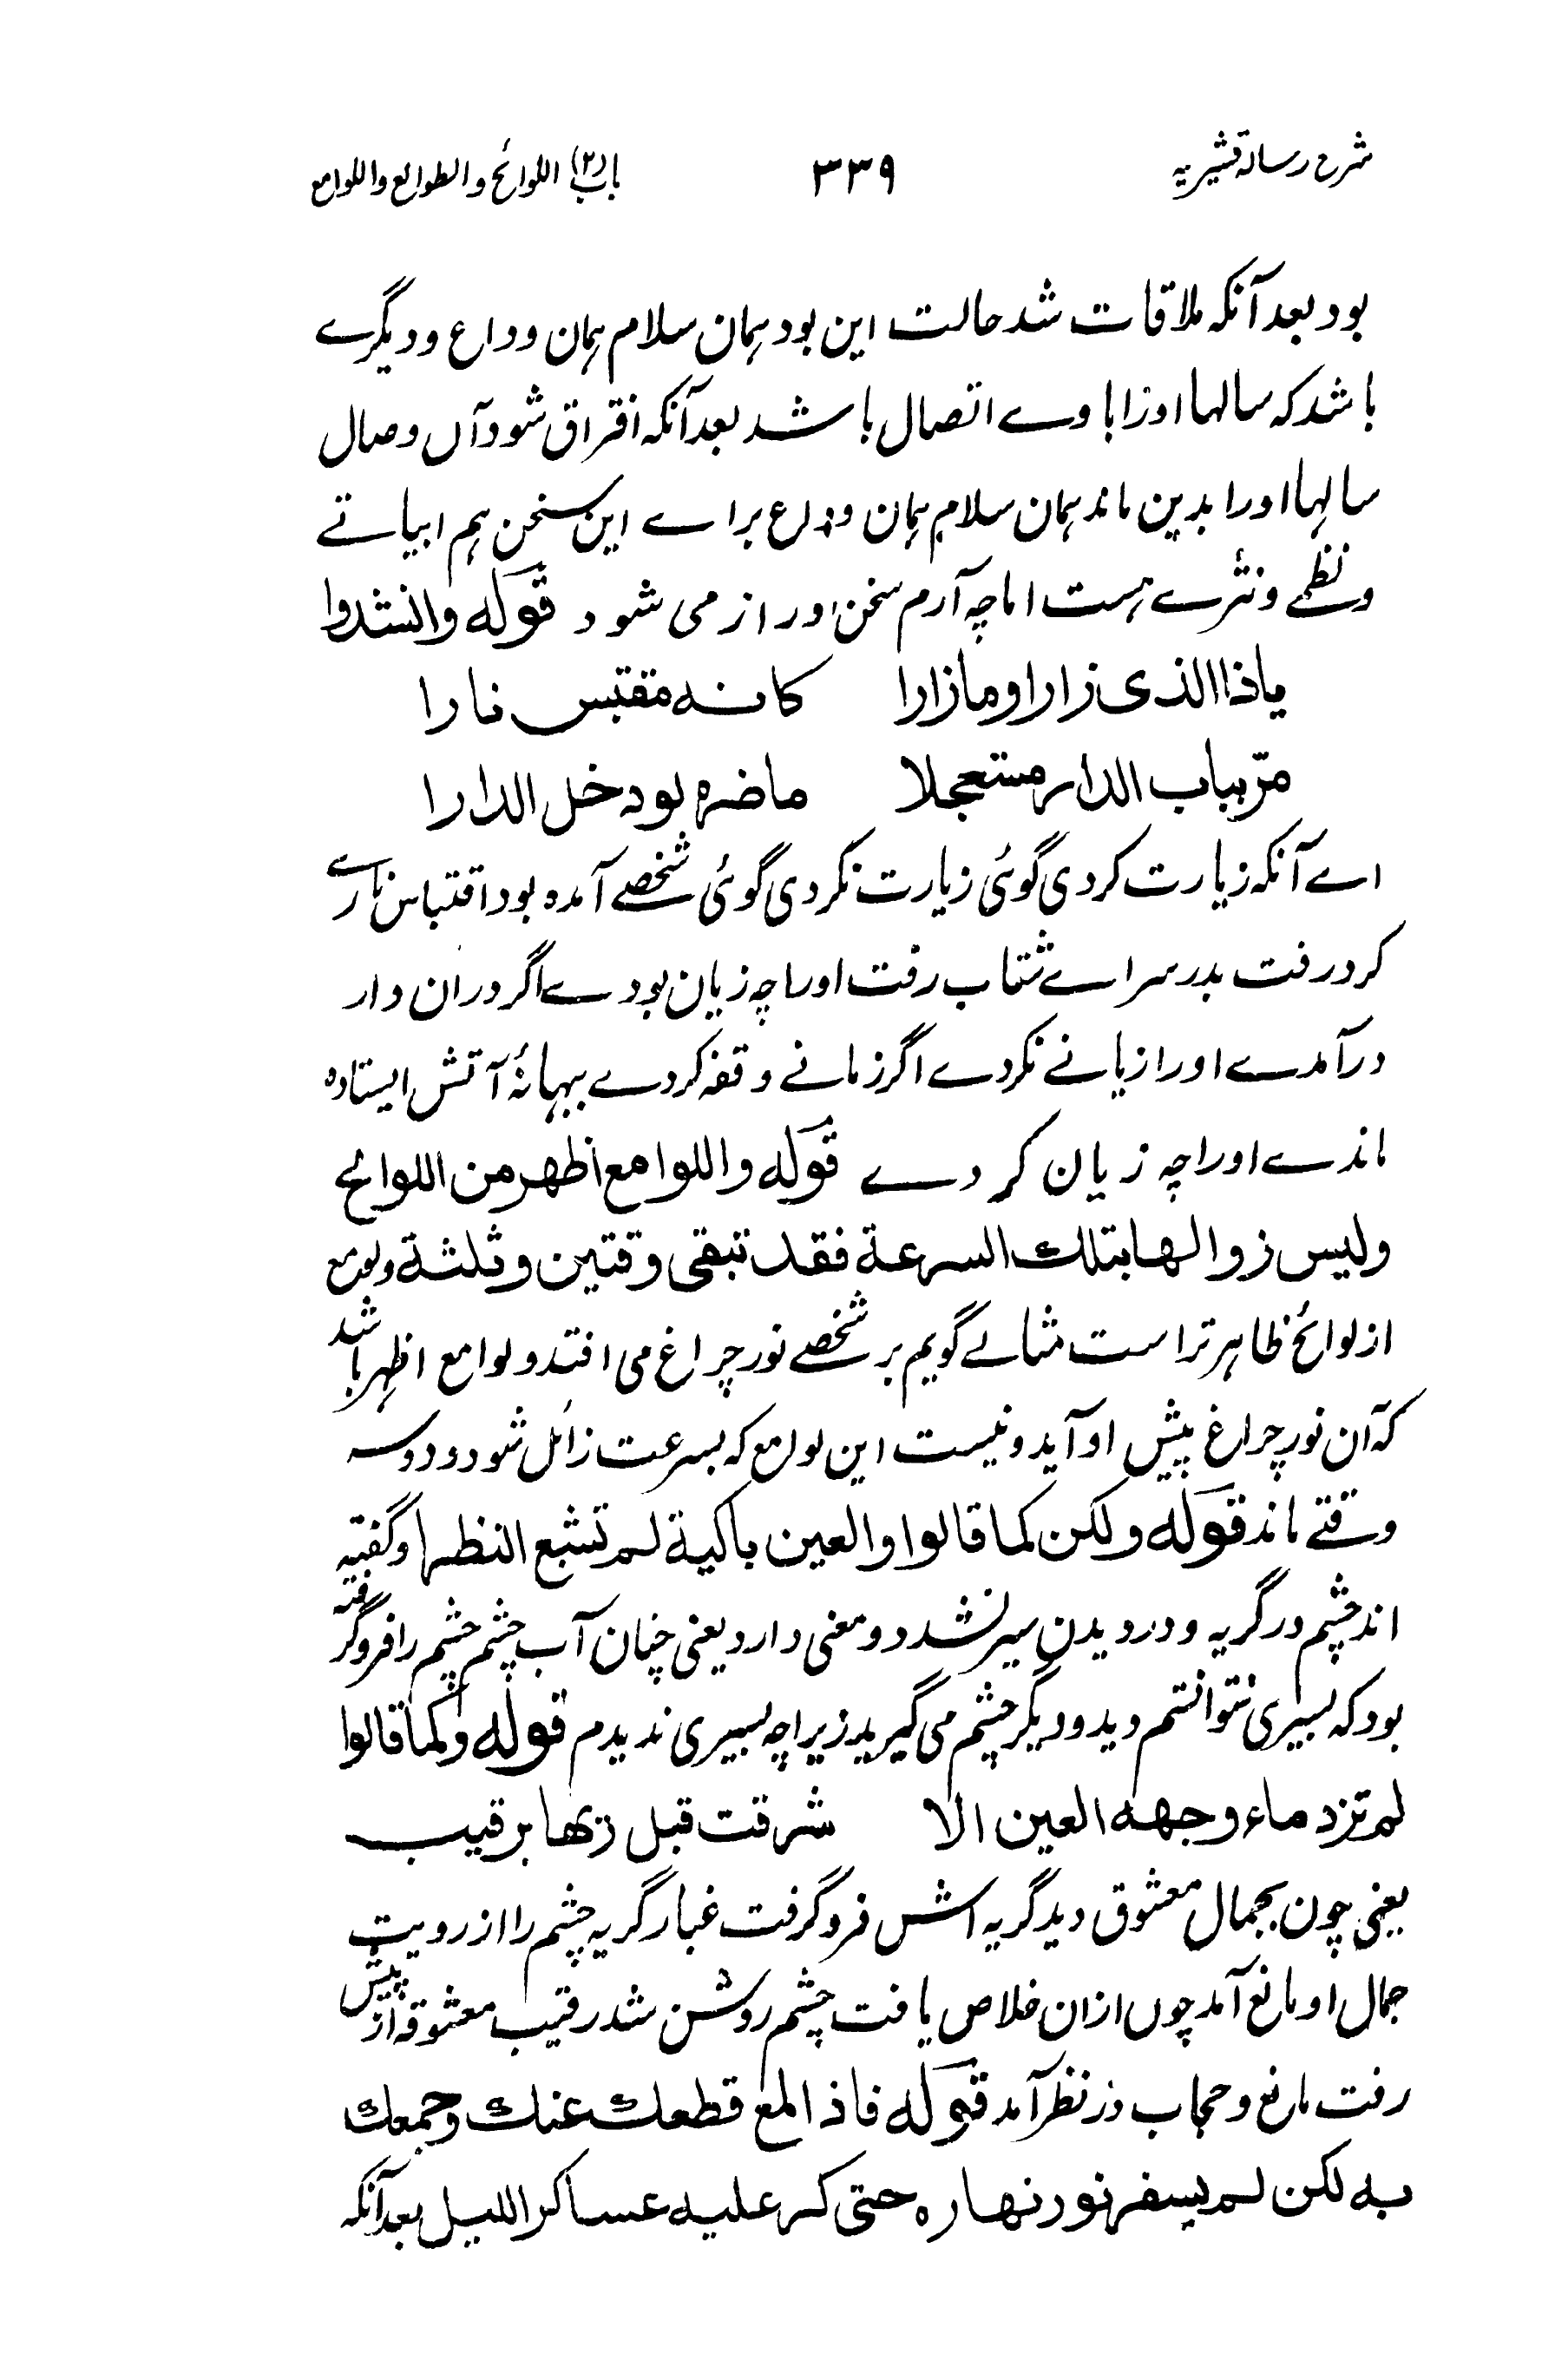 شرح رسالہ قشیریہ ۳۳۹ باب (۲) اللوائح والطوالع واللوامع
بود بعد آنکہ ملاقات شد حالت این بود ہمان سلام ہمان وداع و دیگرے
باشد کہ سالہا اورا با وے اتصال باشد بعد آنکہ افتراق شود آں وصال
سالہا اورا بدین ماند ہمان سلام ہمان وداع براے این سخن ہم ابیاتے
ونظمے ونثرے ہست اما چہ آرم سخن دراز می شود قولہ وانشدوا
یاذا الذی زار اوما زارا کانہ مقتبس نارا
مرّ بباب الدار مستعجلا ماضرہ لودخل الدارا
اے آنکہ زیارت کردی گوئی زیارت نکردی گوئی شخصے آمدہ بود اقتباس نارے
کرد رفت بدر سراے شتاب رفت اورا چہ زیان بودے اگر دران دار
درآمدے اورا زیانے نکردے اگر زمانے وقفہ کردے بہانۂ آتش ایستادہ
ماندے اورا چہ زیان کردے قولہ واللوامع اظہر من اللوائح
ولیس زوالھا بتلك السرعة فقد تبقی وقتین وثلثة ولوامع
از لوائح ظاہر تر است مثالے گویم بر شخصے نور چراغ می افتد ولوامع اظہر باشد
کہ آن نور چراغ پیش او آید ونیست این لوامع کہ بسرعت زائل شود ودوسہ
وقتے ماند قولہ ولکن کما قالوا والعین باکیة لم تشبع النظرا وگفتہ
اند چشم درگریہ ودر دیدن سیر نشد دو معنی دارد یعنی چنان آب چشم چشم را فروگرفتہ
بود کہ بسیری نتوانستم دید ودیگر چشم می گرید زیراچہ بسیری ندیدم قولہ وکما قالوا
لم ترد ماء وجھہ العین الا شرقت قبل ریھا برقیب
یعنی چون بجمال معشوق دید گریہ اش فروگرفت غبار گریہ چشم را از رویت
جمال او مانع آمد چوں ازان خلاص یافت چشم روشن شد رقیب معشوقہ از پیش
رفت مانع وحجاب در نظر آمد قولہ فاذا لمع قطعك عنك وجمعك
بہ لکن لم یسفر نور نھارہ حتی کر علیہ عساکر اللیل بعد آنکہ